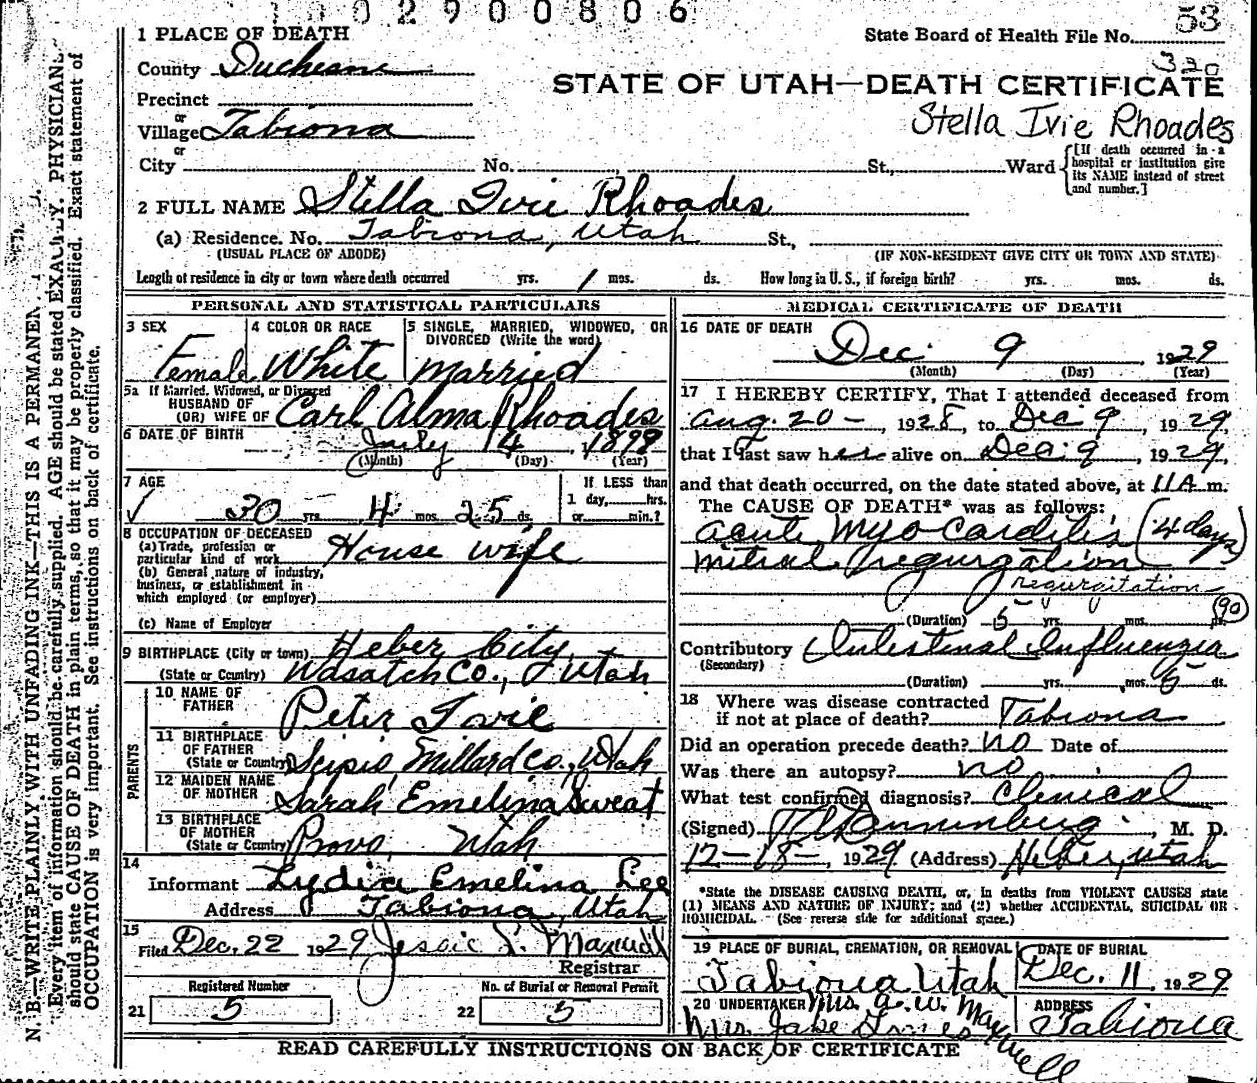 02900806
53
1 PLACE OF DEATH
State Board of Health File No.
330
County Duchesne
STATE OF UTAH—DEATH CERTIFICATE
Precinct
or
Village Tabiona
Stella Ivie Rhoades
or
City No. St., Ward
[If death occurred in a hospital or institution give its NAME instead of street and number.]
2 FULL NAME Stella Ivie Rhoades
(a) Residence. No. Tabiona, Utah St.,
(USUAL PLACE OF ABODE) (IF NON-RESIDENT GIVE CITY OR TOWN AND STATE)
Length of residence in city or town where death occurred yrs. 1 mos. ds. How long in U. S., if foreign birth? yrs. mos. ds.
PERSONAL AND STATISTICAL PARTICULARS
3 SEX
Female
4 COLOR OR RACE
White
5 SINGLE, MARRIED, WIDOWED, OR DIVORCED (Write the word)
Married
5a If Married, Widowed, or Divorced
HUSBAND OF
(OR) WIFE OF Carl Alma Rhoades
6 DATE OF BIRTH
July 4 1899
(Month) (Day) (Year)
7 AGE
30 yrs. 4 mos. 25 ds.
If LESS than
1 day, hrs.
or min.?
8 OCCUPATION OF DECEASED
(a) Trade, profession or
particular kind of work House wife
(b) General nature of industry,
business, or establishment in
which employed (or employer)
(c) Name of Employer
9 BIRTHPLACE (City or town) Heber City,
(State or Country) Wasatch Co., Utah
PARENTS
10 NAME OF
FATHER Peter Ivie
11 BIRTHPLACE
OF FATHER
(State or Country) Scipio, Millard Co., Utah
12 MAIDEN NAME
OF MOTHER Sarah Emelina Sweat
13 BIRTHPLACE
OF MOTHER
(State or Country) Provo, Utah
14
Informant Lydia Emelina Lee
Address Tabiona, Utah
15
Filed Dec. 22 1929
Registrar
Registered Number
21 5
No. of Burial or Removal Permit
22 5
MEDICAL CERTIFICATE OF DEATH
16 DATE OF DEATH
Dec. 9, 1929
(Month) (Day) (Year)
17 I HEREBY CERTIFY, That I attended deceased from
Aug. 20 -, 1928, to Dec 9, 1929
that I last saw her alive on Dec. 9, 1929,
and that death occurred, on the date stated above, at 11 A m.
The CAUSE OF DEATH* was as follows:
Acute Myocarditis (4 days)
Mitral regurgation
regurgitation
90
(Duration) 5 yrs. mos. ds.
Contributory Intestinal Influenzia
(Secondary)
(Duration) yrs. mos. 6 ds.
18 Where was disease contracted
if not at place of death? Tabiona
Did an operation precede death? No Date of
Was there an autopsy? no
What test confirmed diagnosis? Clinical
(Signed) M. D.
12-18-, 1929 (Address) Heber, Utah
*State the DISEASE CAUSING DEATH, or, in deaths from VIOLENT CAUSES state
(1) MEANS AND NATURE OF INJURY; and (2) whether ACCIDENTAL, SUICIDAL OR
HOMICIDAL. (See reverse side for additional space.)
19 PLACE OF BURIAL, CREMATION, OR REMOVAL
Tabiona Utah
DATE OF BURIAL
Dec. 11, 1929
20 UNDERTAKER Mrs. A. W. Maxwell
Mrs. Jake
ADDRESS
Tabiona
READ CAREFULLY INSTRUCTIONS ON BACK OF CERTIFICATE
N. B.—WRITE PLAINLY WITH UNFADING INK—THIS IS A PERMANEN
Every item of information should be carefully supplied. AGE should be stated EXACTLY. PHYSICIANS
should state CAUSE OF DEATH in plain terms, so that it may be properly classified. Exact statement of
OCCUPATION is very important. See instructions on back of certificate.